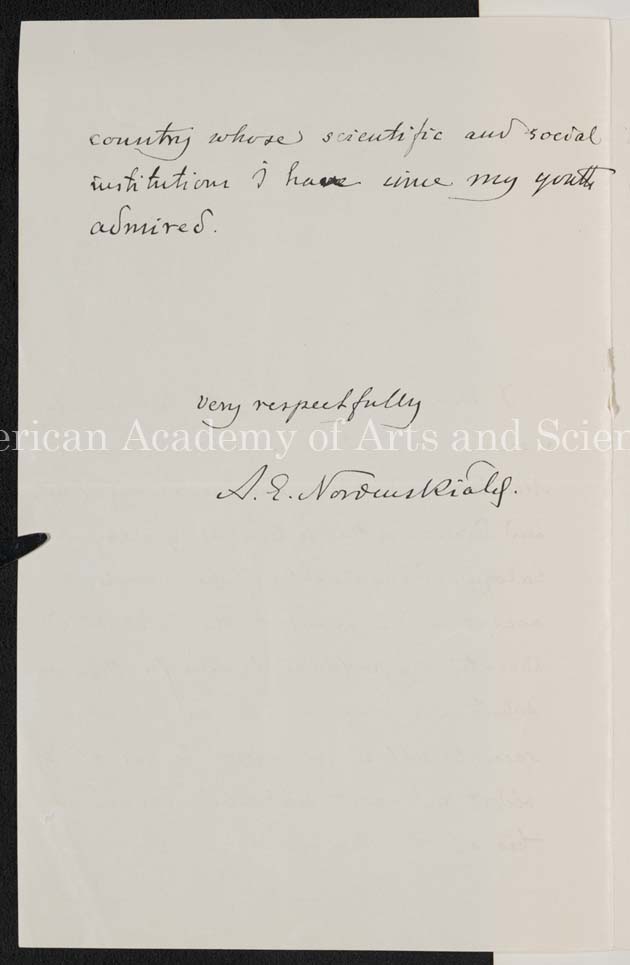 country whose scientific and social
institutions I have since my youth
admired.
very respectfully
American Academy of Arts and Scien
A. E. Nordenskiöld.